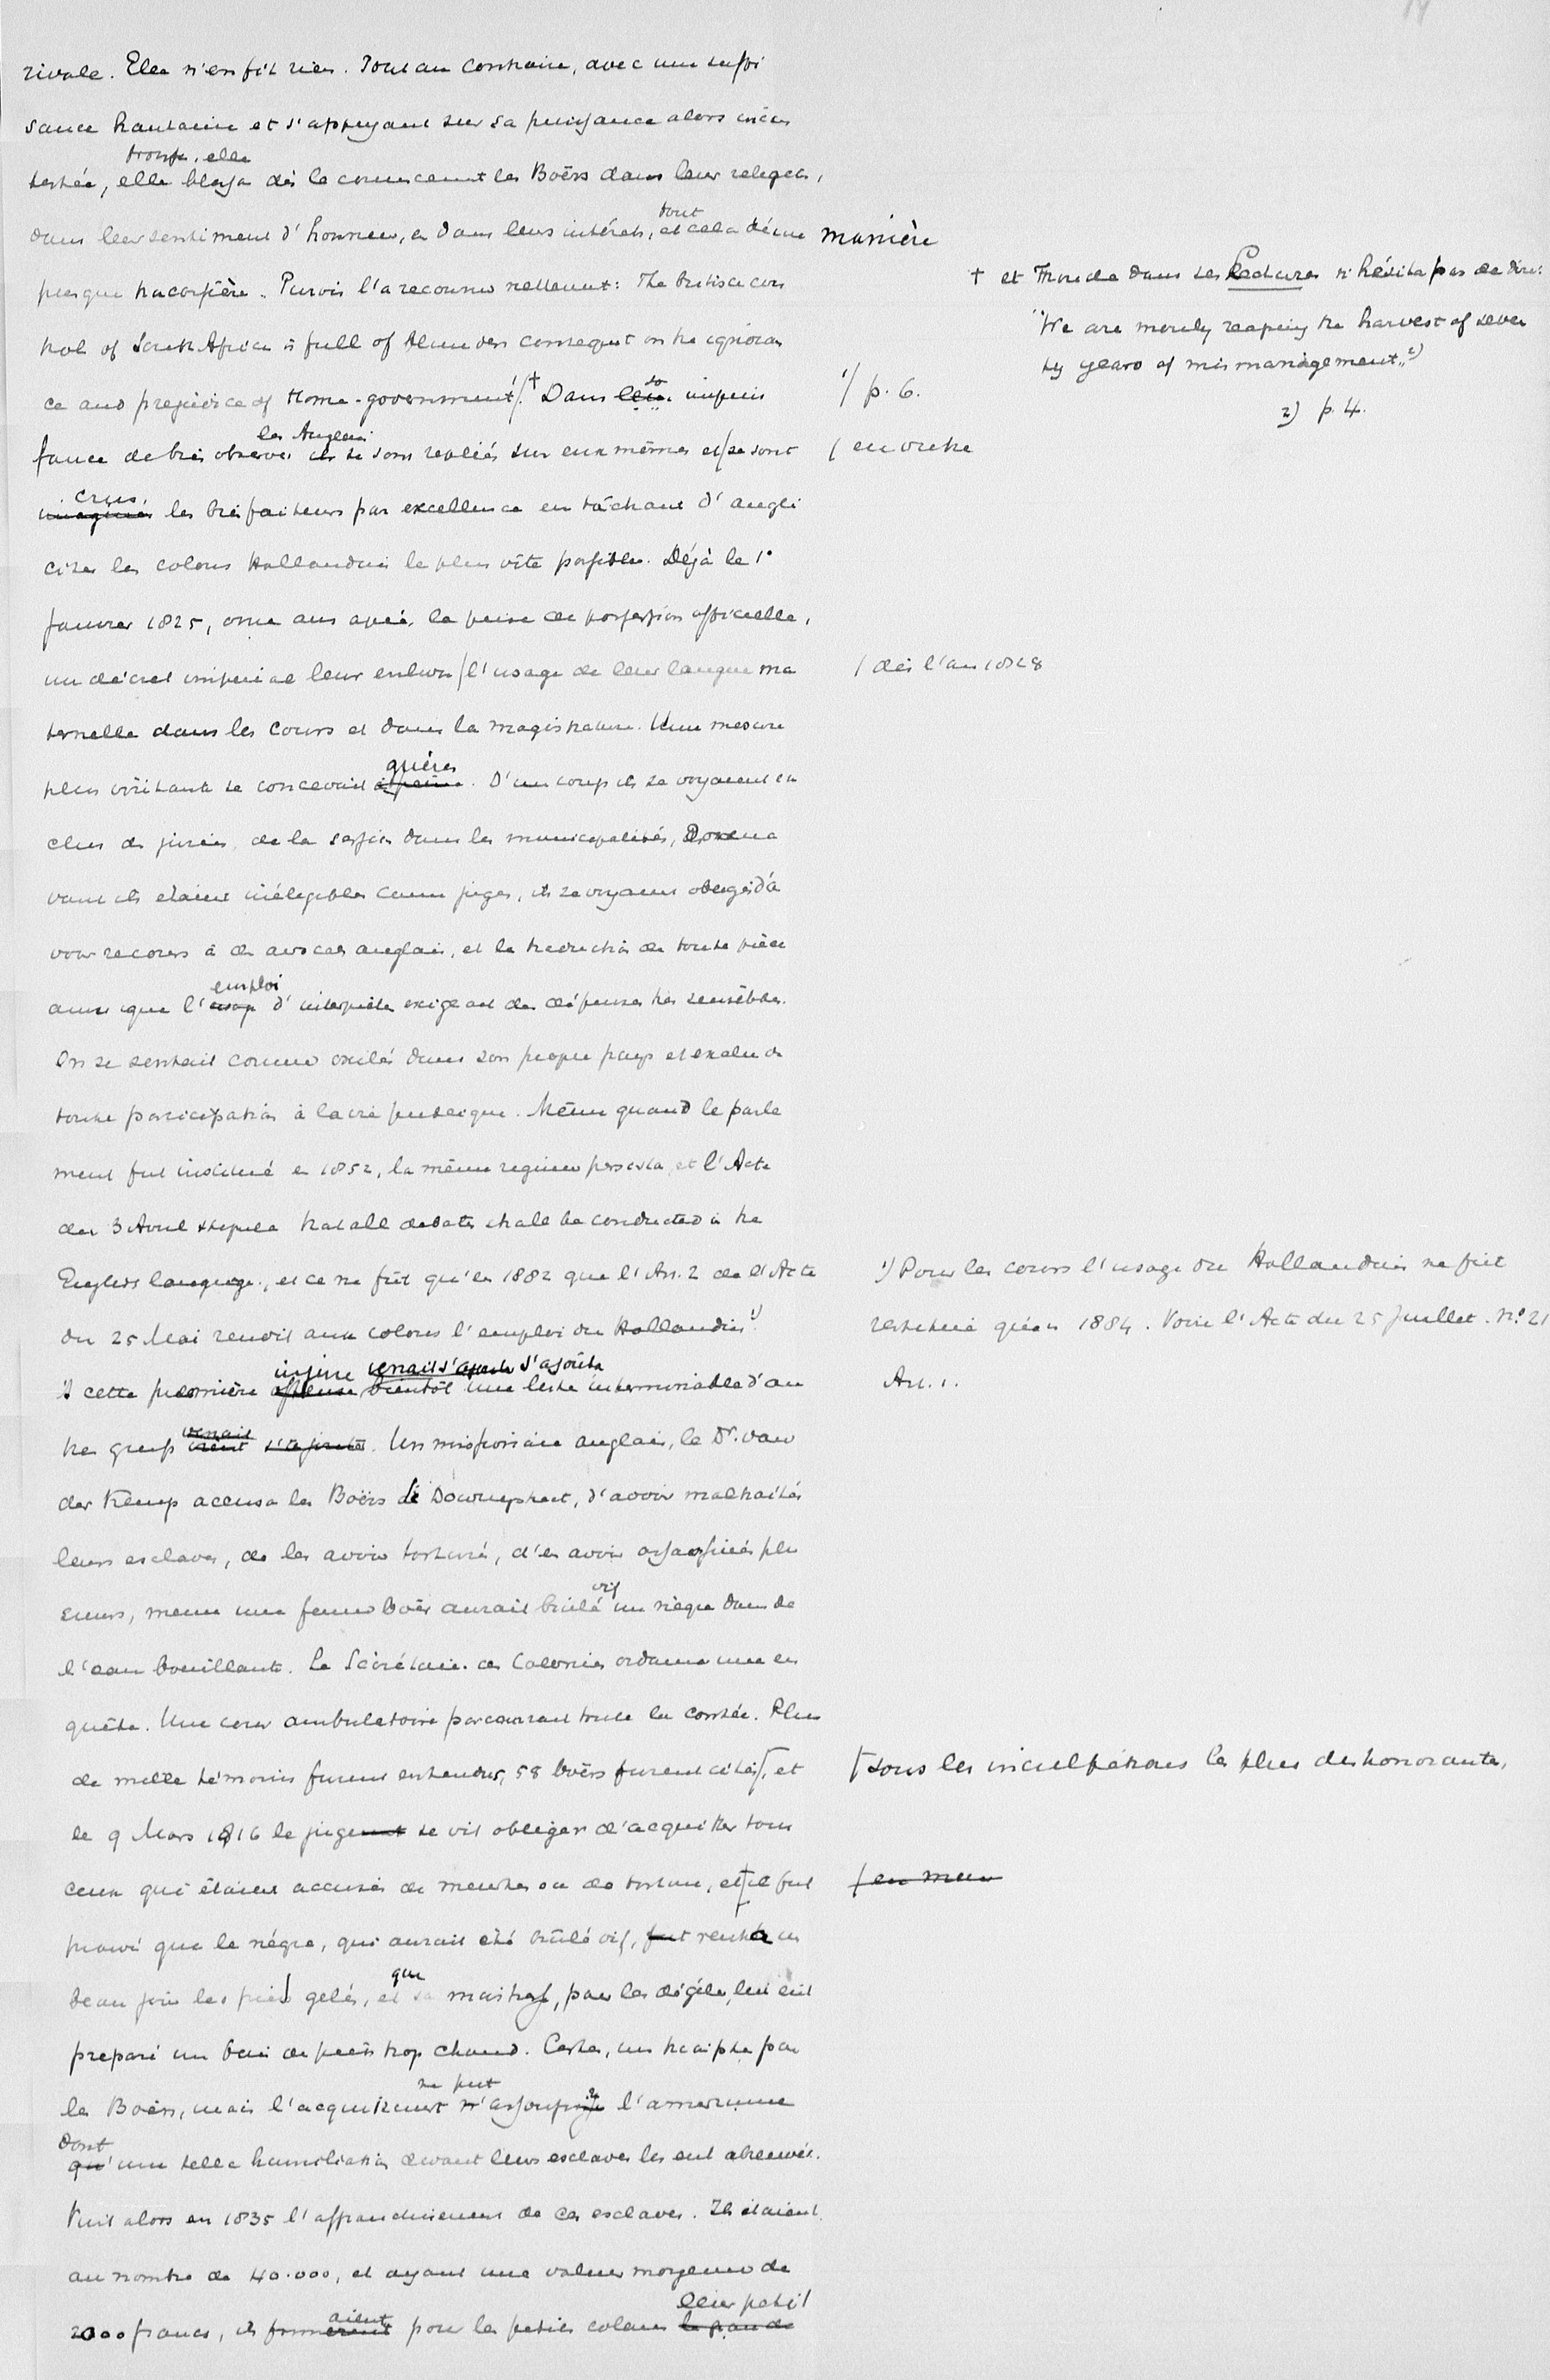 rivale. Elle n'en fit rien. Tout au contraire, avec une suffi
sance hautaine et s'appuyant sur sa puissance alors incon
testée, elle blessa dès le commencement les Boërs dans leur religion,
dans leur sentiment d'honneur, et dans leurs intérêts, et tout cela d'une manière
presque tracassière. Purvis l'a reconnu nettement: The british con
trol of South Africa is full of blunders consequent on the ignoran
ce and prejudice of Home-government 1) † Dans
1) p. 6.
† et Froude dans ses Lectures n'hésita pas de dire:
"We are merely reaping the harvest of seven
ty years of mismanagement" 2)
2) p. 4.
les Anglais se sont repliés sur eux mêmes et / se sont
/ en outre
imaginés crus les bienfaiteurs par excellence en tâchant d'angli
ciser les colons Hollandais le plus vite possible. Déjà le 1°
Janvier 1825, onze ans après la prise de possession officielle,
un décret impérial leur enleva / l'usage de leur langue ma
/ dès l'an 1828
ternelle dans les cours et dans la magistrature. Une mesure
plus irritante se concevait à peine guères. D'un coup ils se voyaient ex
clus des jurés, de la session dans les municipalités, Dorena
vant ils étaient inéligibles comme juges, ils se voyaient obligés d'a
voir recours à des avocats anglais, et la traduction de toute pièce
ainsi que l'usage emploi d'interprète exigeait des dépenses très sensibles.
On se sentait comme exilé dans son propre pays et exclu de
toute participation à la vie publique. Même quand le parle
ment fut institué en 1852, le même régime persista, et l'Acte
du 3 Avril stipula that all debates shall be conducted in the
English language, et ce ne fût qu'en 1882 que l'Art. 2 de l'Acte
du 25 Mai rendit aux colons l'emploi du Hollandais 1)
1) Pour les cours l'usage du Hollandais ne fut
restitué qu'en 1884. Voir l'Acte du 25 Juillet. N° 21
Art. 1.
A cette première offense injure bientôt venait s'ajouter s'ajoûta une liste interminable d'au
tres griefs vient venait s'ajouter. Un missionnaire anglais, le Dr. van
der Kemp accusa les Boërs de Downyshoet, d'avoir maltraités
leurs esclaves, de les avoir torturés, d'en avoir assassinés plu
sieurs, même une femme Boër aurait brûlé vif un nègre dans de
l'eau bouillante. Le Sécrétaire des Colonies ordonna une en
quête. Une cour ambulatoire parcourait toute la contrée. Plus
de mille témoins furent entendus, 58 boërs furent cités /, et
/ sous les inculpations les plus deshonorantes,
le 9 Mars 1816 le juge se vit obliger d'acquitter tous
ceux qui étaient accusés de meurtres ou de torture, et / il fut
prouvé que le nègre, qui aurait été brûlé vif, fut rentra un
beau jour les pieds gelés, et que sa maitresse, pour les dégeler, lui eût
preparé un bain de pieds trop chaud. Certes, un triomphe pour
les Boërs, mais l'acquittement ne put assoupir l'amertume
qu' dont une telle humiliation devant leurs esclaves les eut abreuvés.
Vint alors en 1835 l'affranchissement de ces esclaves. Ils étaient
au nombre de 40.000, et ayant une valeur moyenne de
2000 francs, ils formèrent aient pour les petits colons la grande leur petit